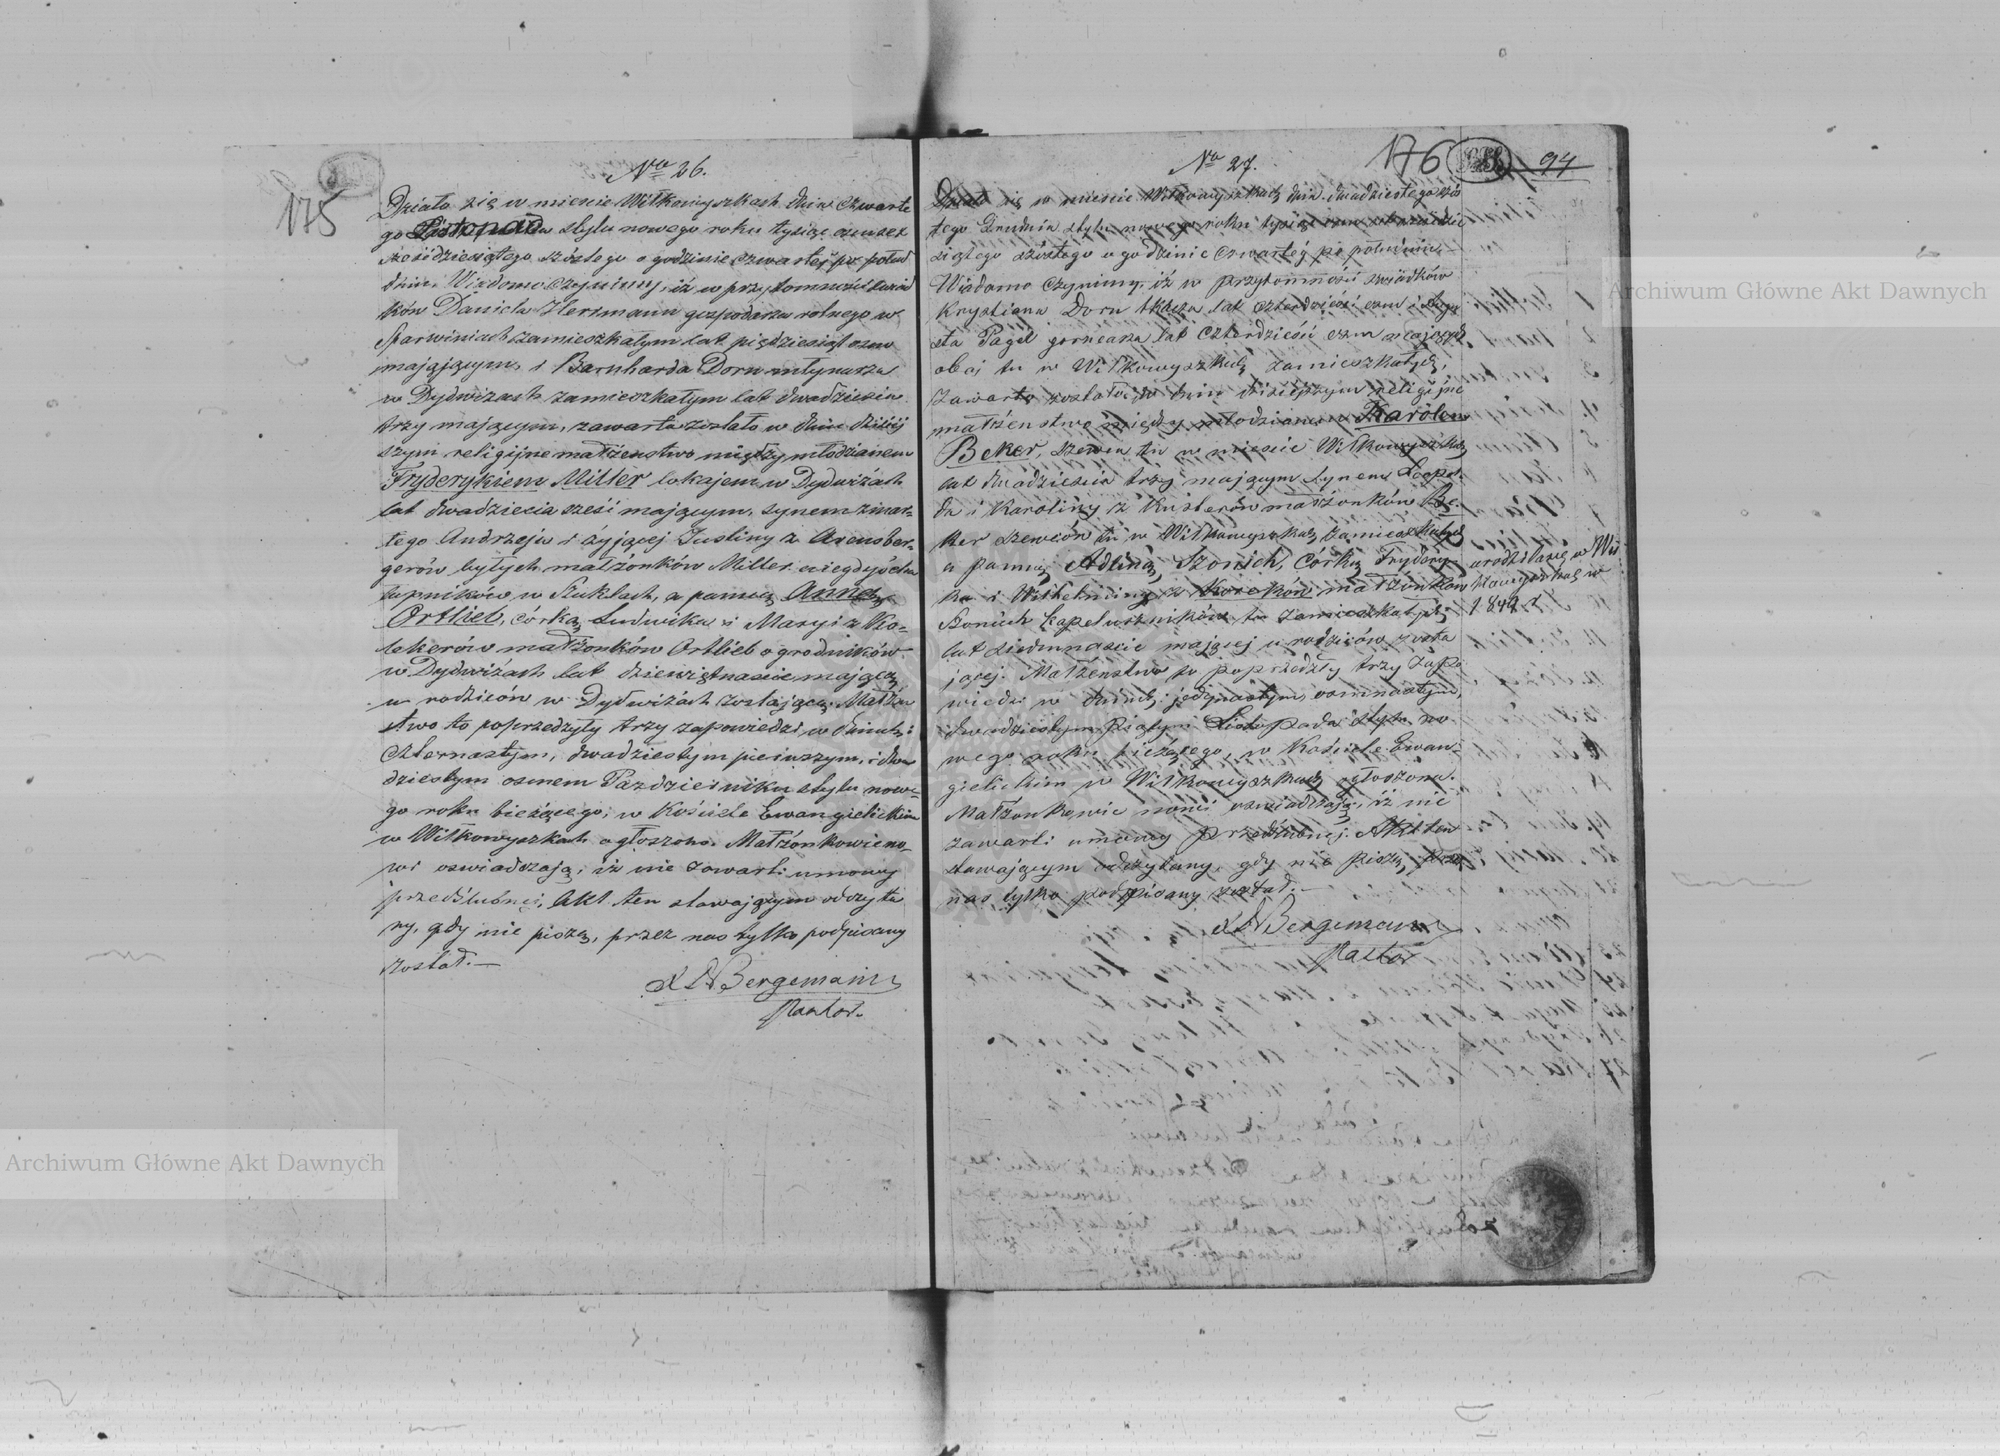 175
No 26.
Działo się w mieście Wiłkowyszkach dnia czwarte
go Listopada stylu nowego roku tysiąc ośmset
sześćdziesiątego szóstego o godzinie czwartej po połud
dniu. Wiadomo czynimy, iż w przytomności świad
ków Daniela Hermann gospodarza rolnego w
zamieszkałym lat pięćdziesiąt osm
mającym, i Bernharda Dorn młynarza
w Dydwiżach zamieszkałym lat dwadzieścia
trzy mającym, zawarte zostało w dniu dzisiej
szym religijne małżeństwo między młodzianem
Fryderykiem Miller lokajem w Dydwiżach
lat dwadzieścia sześć mającym, synem zmar-
łego Andrzeja i żyjącej Justiny z Arensber-
gerów byłych małżonków Miller niegdyś
w a panną Anną
Ortlieb, córką Ludwika i Maryi z Ko-
lekerów małżonków Ortlieb ogrodników
w Dydwiżach lat dziewiętnaście mającą
u rodziców w Dydwiżach zostającą. Małżeń
stwo to poprzedzyły trzy zapowiedzi w dniach:
czternastym, dwadziestym pierwszym, i dwu
dziestym osmem Października stylu nowe-
go roku bieżącego, w Kościele Ewangielickim
w Wiłkowyszkach ogłoszone. Małżonkowie no-
wi oświadczają, iż nie zawarli umowy
przedślubnej. Akt ten stawającym odczyta
ny, gdy nie piszą, przez nas tylko podpisany
został.—
Bergemann
Pastor.
176
94
No 27.
Działo się w mieście Wiłkowyszkach dnia dwudziestego szós
tego Grudnia stylu nowego roku tysiąc osm set sześćdzie
siątego szóstego o godzinie czwartej po południu.—
Wiadomo czynimy, iż w przytomności świadków
Krystiana Dorn tkacza lat czterdzieści osm i Augu
sta Pagel garncarza lat czterdzieści osm mających
obaj tu w Wiłkowyszkach zamieszkałych,
zawarte zostało w dniu dzisiejszym religijne
małżeństwo między młodzianem Karolem
Beker, szewca tu w mieście Wiłkowyszkach
lat dwadzieścia trzy mającym synem Leopol
da i Karoliny z Kusterów małżonków Be-
ker szewców tu w Wiłkowyszkach zamieszkałych
a panną Adliną Szonich, córką Frydery-
ka i Wilhelminy z małżonków
Szonich kapeluszników tu zamieszkałych
lat siedmnaście mającej u rodziców zosta
jącej. Małżeństwo to poprzedzyły trzy zapo
wiedzi w dniach: jedynastym, osmnastym,
dwudziestym piątym Listopada stylu no
wego roku bieżącego, w Kościele Ewan-
gielickim w Wiłkowyszkach ogłoszone.
Małżonkowie nowi oświadczają, iż nie
zawarli umowy przedślubnej. Akt ten
stawającym odczytany, gdy nie piszą, przez
nas tylko podpisany został.—
Bergemann
Pastor
urodzilasię w Wił
kowyszkach w
184 r
Archiwum Główne Akt Dawnych
Archiwum Główne Akt Dawnych